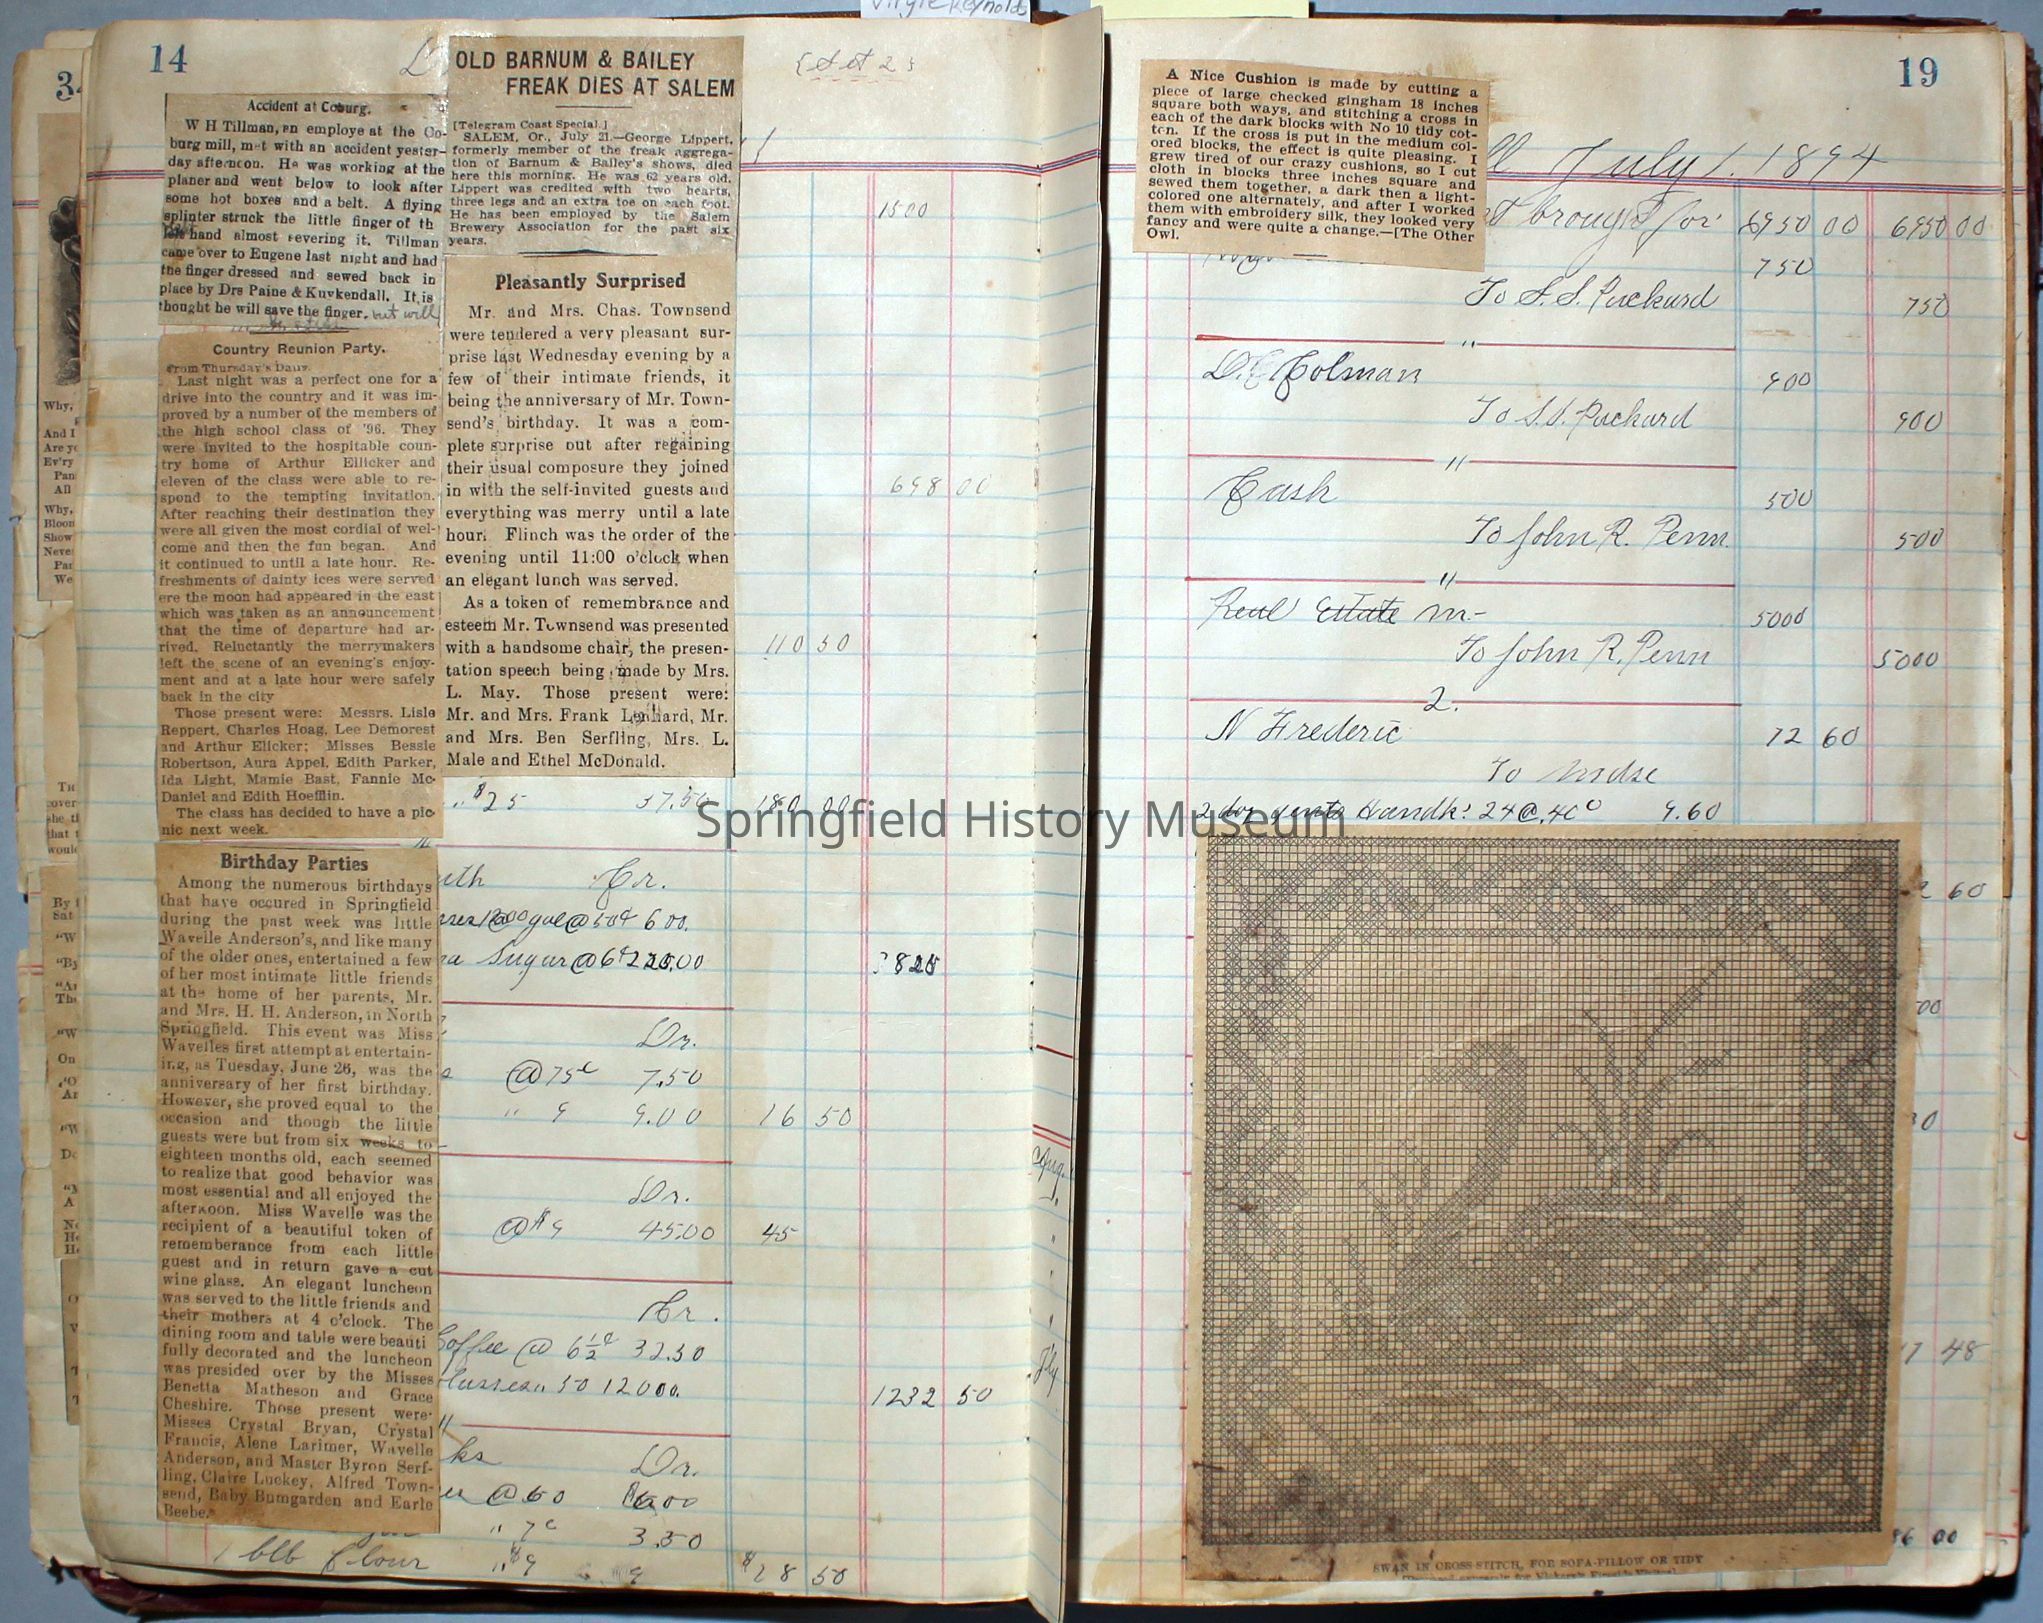 Virgie Reynolds
14
{Set 2}
Accident at Coburg.
W H Tillman, an employe at the Co-
burg mill, met with an accident yester-
day afternoon. He was working at the
planer and went below to look after
some hot boxes and a belt. A flying
splinter struck the little finger of th
left hand almost severing it. Tillman
came over to Eugene last night and had
the finger dressed and sewed back in
place by Drs Paine & Kuykendall. It is
thought he will save the finger. but will
Country Reunion Party.
From Thursday's Daily.
Last night was a perfect one for a
drive into the country and it was im-
proved by a number of the members of
the high school class of '96. They
were invited to the hospitable coun-
try home of Arthur Ellicker and
eleven of the class were able to re-
spond to the tempting invitation.
After reaching their destination they
were all given the most cordial of wel-
come and then the fun began. And
it continued to until a late hour. Re-
freshments of dainty ices were served
ere the moon had appeared in the east
which was taken as an announcement
that the time of departure had ar-
rived. Reluctantly the merrymakers
left the scene of an evening's enjoy-
ment and at a late hour were safely
back in the city
Those present were: Messrs. Lisle
Reppert, Charles Hoag, Lee Demorest
and Arthur Elicker; Misses Bessie
Robertson, Aura Appel, Edith Parker,
Ida Light, Mamie Bast, Fannie Mc-
Daniel and Edith Hoefflin.
The class has decided to have a pic-
nic next week.
Birthday Parties
Among the numerous birthdays
that have occured in Springfield
during the past week was little
Wavelle Anderson's, and like many
of the older ones, entertained a few
of her most intimate little friends
at the home of her parents, Mr.
and Mrs. H. H. Anderson, in North
Springfield. This event was Miss
Wavelles first attempt at entertain-
ing, as Tuesday, June 26, was the
anniversary of her first birthday.
However, she proved equal to the
occasion and though the little
guests were but from six weeks to
eighteen months old, each seemed
to realize that good behavior was
most essential and all enjoyed the
afternoon. Miss Wavelle was the
recipient of a beautiful token of
rememberance from each little
guest and in return gave a cut
wine glass. An elegant luncheon
was served to the little friends and
their mothers at 4 o'clock. The
dining room and table were beauti
fully decorated and the luncheon
was presided over by the Misses
Benetta Matheson and Grace
Cheshire. Those present were
Misses Crystal Bryan, Crystal
Francis, Alene Larimer, Wavelle
Anderson, and Master Byron Serf-
ling, Claire Luckey, Alfred Town-
send, Baby Bumgarden and Earle
Beebe.
OLD BARNUM & BAILEY
FREAK DIES AT SALEM
[Telegram Coast Special.]
SALEM, Or., July 21.—George Lippert,
formerly member of the freak aggrega-
tion of Barnum & Bailey's shows, died
here this morning. He was 62 years old.
Lippert was credited with two hearts,
three legs and an extra toe on each foot.
He has been employed by the Salem
Brewery Association for the past six
years.
Pleasantly Surprised
Mr. and Mrs. Chas. Townsend
were tendered a very pleasant sur-
prise last Wednesday evening by a
few of their intimate friends, it
being the anniversary of Mr. Town-
send's birthday. It was a com-
plete surprise out after regaining
their usual composure they joined
in with the self-invited guests and
everything was merry until a late
hour. Flinch was the order of the
evening until 11:00 o'clock when
an elegant lunch was served.
As a token of remembrance and
esteem Mr. Townsend was presented
with a handsome chair, the presen-
tation speech being made by Mrs.
L. May. Those present were:
Mr. and Mrs. Frank Lenhard, Mr.
and Mrs. Ben Serfling, Mrs. L.
Male and Ethel McDonald.
1500
698 00
110 50
" $25 37.50 180 00
Cr.
gal @ 50¢ 6 00.
Sugar @ 6¢
Dr.
@ 75¢ 7.50
" 9 9.00 16 50
Dr.
@ $9 45.00 45
Cr.
Coffee @ 6½¢ 32.50
50 1200. 1232 50
ks Dr.
@ 60
" 7¢ 3.50
1 blb flour " $9 9 $28 50
Springfield History Museum
19
A Nice Cushion is made by cutting a
piece of large checked gingham 18 inches
square both ways, and stitching a cross in
each of the dark blocks with No 10 tidy cot-
ton. If the cross is put in the medium col-
ored blocks, the effect is quite pleasing. I
grew tired of our crazy cushions, so I cut
cloth in blocks three inches square and
sewed them together, a dark then a light-
colored one alternately, and after I worked
them with embroidery silk, they looked very
fancy and were quite a change.—[The Other
Owl.
July 1. 1894
brought for 6950 00 6950 00
750
To S. S. Packard 750
"
D. C. Colman 900
To S. S. Packard 900
"
Cash 500
To John R. Penn 500
"
Real Estate 5000
To John R. Penn 5000
2.
N Frederic 12 60
To Mdse
2 doz gents Handk's 24 @ .40¢ 9.60
2 60
Aug.
1.
July
17 48
86 00
SWAN IN CROSS-STITCH, FOR SOFA-PILLOW OR TIDY